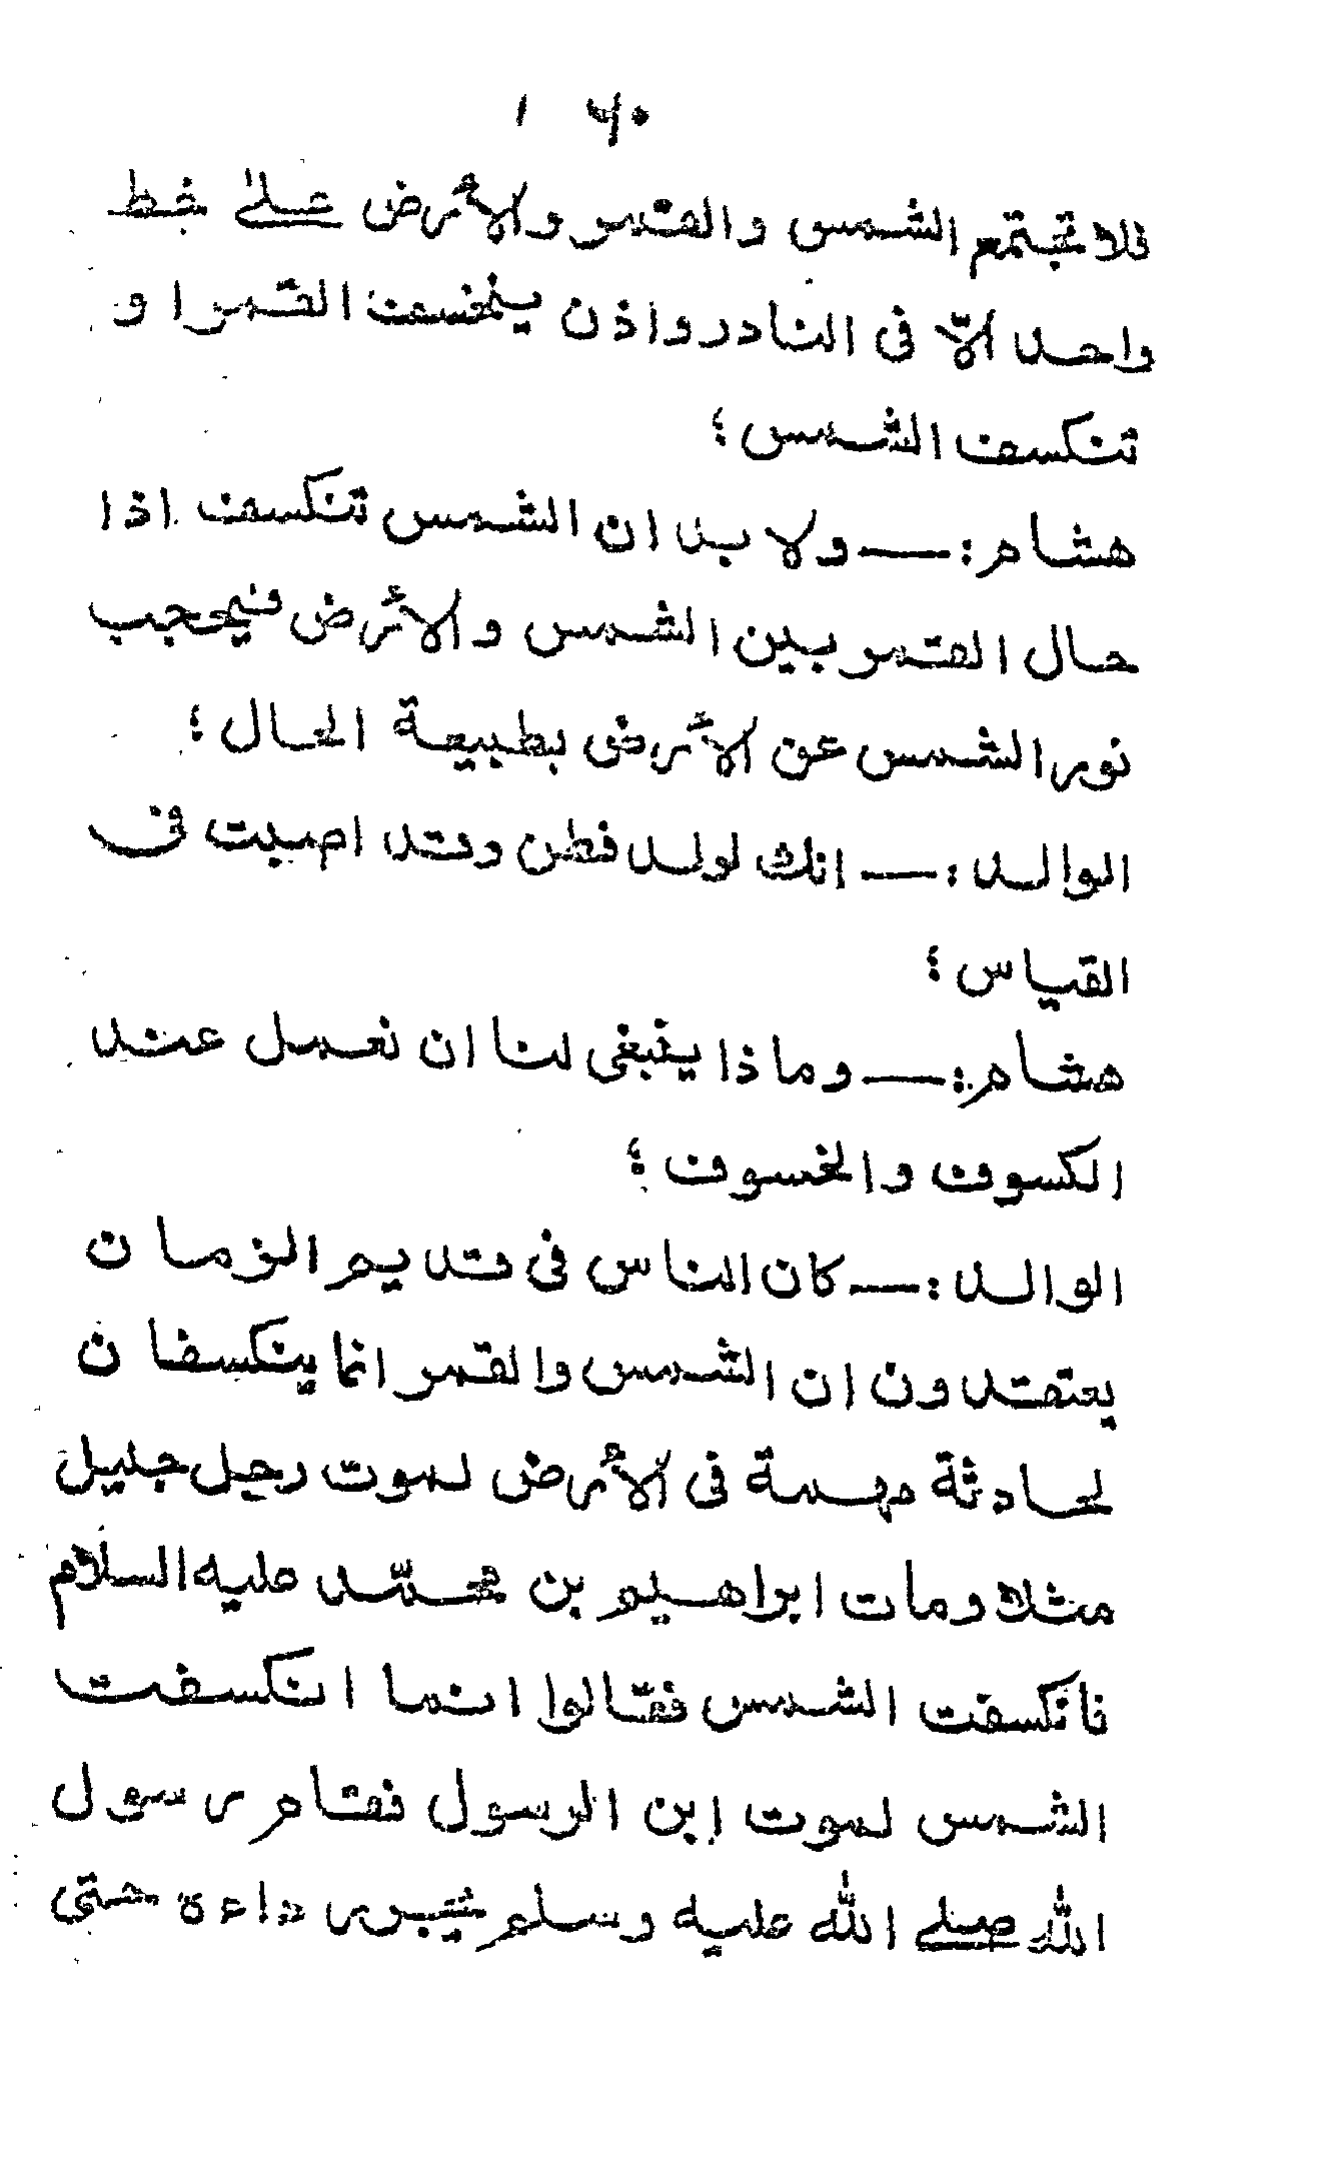 ١٦٠
فلا تجتمع الشمس والقمر والأرض على خط
واحد الّا فى النادر واذن ينخسف القمر ا و
تنكسف الشمس ؛
هشام : — ولا بد ان الشمس تنكسف اذا
حال القمر بين الشمس والأرض فيحجب
نور الشمس عن الأرض بطبيعة الحال ؛
الوالد : — انك لولد فطن وقد اصبت فى
القياس ؛
هشام : — وماذا ينبغى لنا ان نعمل عند
الكسوف والخسوف ؛
الوالد : — كان الناس فى قديم الزمان
يعتقدون ان الشمس والقمر انما ينكسفان
لحادثة مهمة فى الأرض لموت رجل جليل
مثلا ومات ابراهيم بن محمّد عليه السلام
فانكسفت الشمس فقالوا انما انكسفت
الشمس لموت ابن الرسول فقام رسول
الله صلى الله عليه وسلم داءه حتى